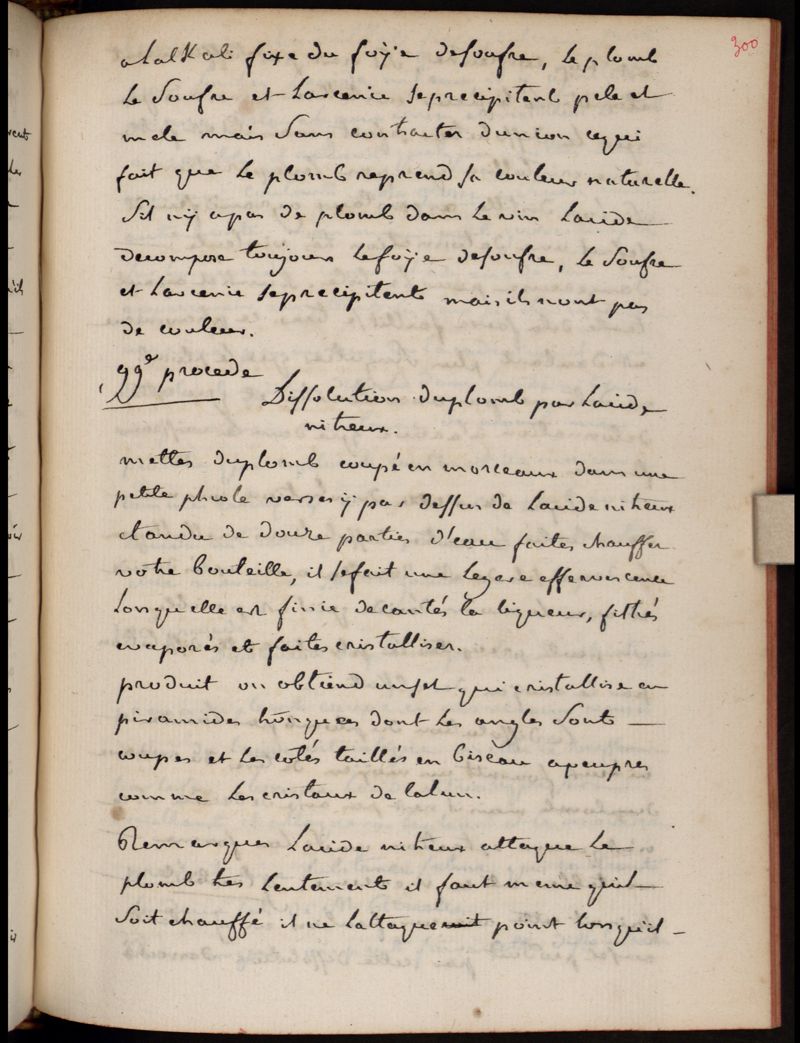 300
alalKali fixe du foÿe desoufre, Le plomb
Le Soufre et Larcenic seprecipitent pele et
mele mais Sans contracter dunion cequi
fait que Le plomb reprend sa couleur naturelle.
Sil nÿ apas de plomb dans Le vin Lacide
decompose toujours Lefoÿe desoufre, Le Soufre
et Larcenic seprecipitent mais ils nont pas
de couleur.
99e procede
Dissolution duplomb par Lacide
nitreux.
mettes duplomb coupé en morceaux dans une
petite phiole versés ÿ par dessus de Lacide nitreux
etandu de douze parties d'eau faites chauffer
votre bouteille, il sefait une Legere effervescence
Lorsquelle est finie decantés la liqueur, filtrés
evaporés et faites cristalliser.
produit on obtiend unsel qui cristallise en
piramides tronquees dont Les angles Sont
coupes et Les cotés taillés en biseau apeupres
comme Les cristaux de lalun.
Remarques Lacide nitreux attaque Le
plomb tres Lentement il faut meme quil
Soit chauffé il ne Lattaque point Lorsquil